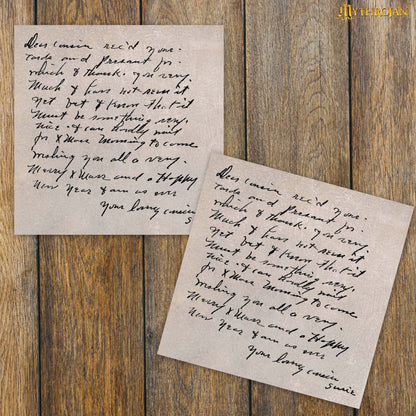 MYTHROJAN
Dear cousin rec'd your.
Card and Present for.
which I thank. you very.
Much I have not seen it
yet but I know that it
Must be something very.
nice. I can hardly wait
for XMass Morning to come
wishing you all a very.
Merry XMass and a Happy
New Year I am as ever
Your loving cousin
Susie
Dear cousin rec'd your.
Card and Present for.
which I thank. you very.
Much I have not seen it
yet but I know that it
Must be something very.
nice. I can hardly wait
for XMass Morning to come
wishing you all a very.
Merry XMass and a Happy
New Year I am as ever
Your loving cousin
Susie